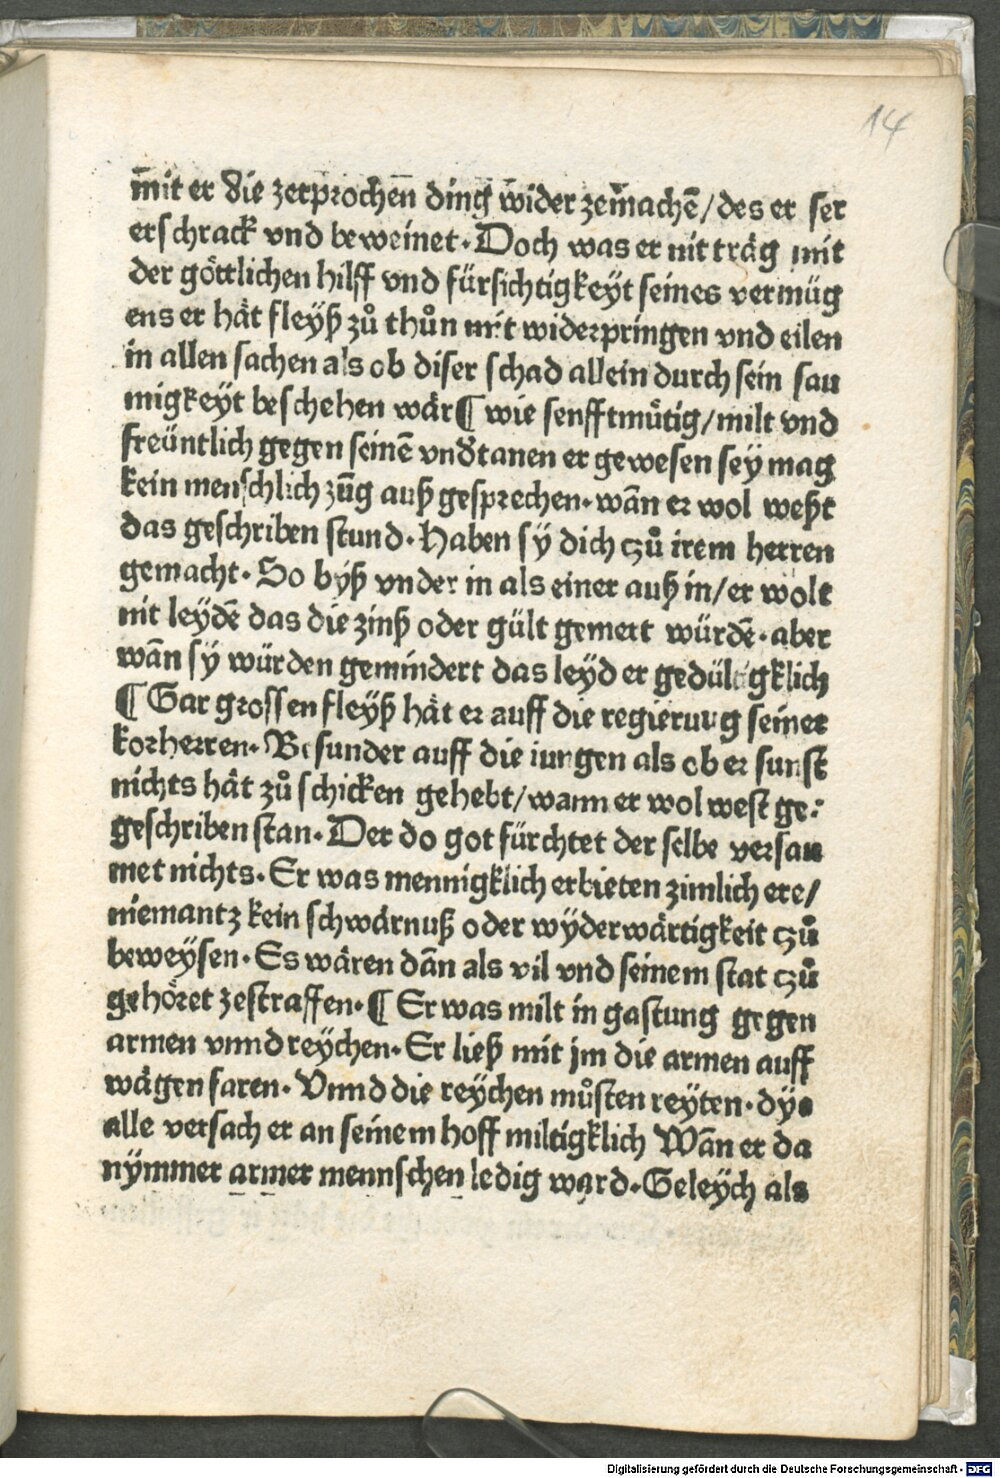 14
m̄it er die zerprochen ding wider zemachē/des er ser
erschrack vnd beweinet. Doch was er nit träg mit
der göttlichen hilff vnd fürsichtigkeyt seines vermüg
ens er hät fleyß zů thůn mit widerpringen vnd eilen
in allen sachen als ob diser schad allein durch sein sau
migkeyt beschehen wär ¶ wie senfftmütig/milt vnd
freüntlich gegen seinē vndtanen er gewesen sey mag
kein menschlich züg auß gesprechen. wān er wol weßt
das geschriben stund. Haben sy dich czů irem herren
gemacht. So byß vnder in als einer auß in/er wolt
nit leydē das die zinß oder gült gemert würdē. aber
wān sy würden gemindert das leyd er gedültigklich
¶ Gar grossen fleyß hät er auff die regierung seiner
korherren. Besunder auff die iungen als ob er sunst
nichts hät zů schicken gehebt/wann er wol west ge:
geschriben stan. Der do got fürchtet der selbe versau
met nichts. Er was mennigklich erbieten zimlich ere/
niemantz kein schwärnuß oder wyderwärtigkeit czů
beweysen. Es wären dān als vil vnd seinem stat czů
gehöret zestraffen. ¶ Er was milt in gastung gegen
armen vnnd reychen. Er ließ mit jm die armen auff
wägen faren. Vnnd die reychen můsten reyten. dye
alle versach er an seinem hoff miltigklich Wān er da
nymmer armer mennschen ledig ward. Geleych als
Digitalisierung gefördert durch die Deutsche Forschungsgemeinschaft - DFG